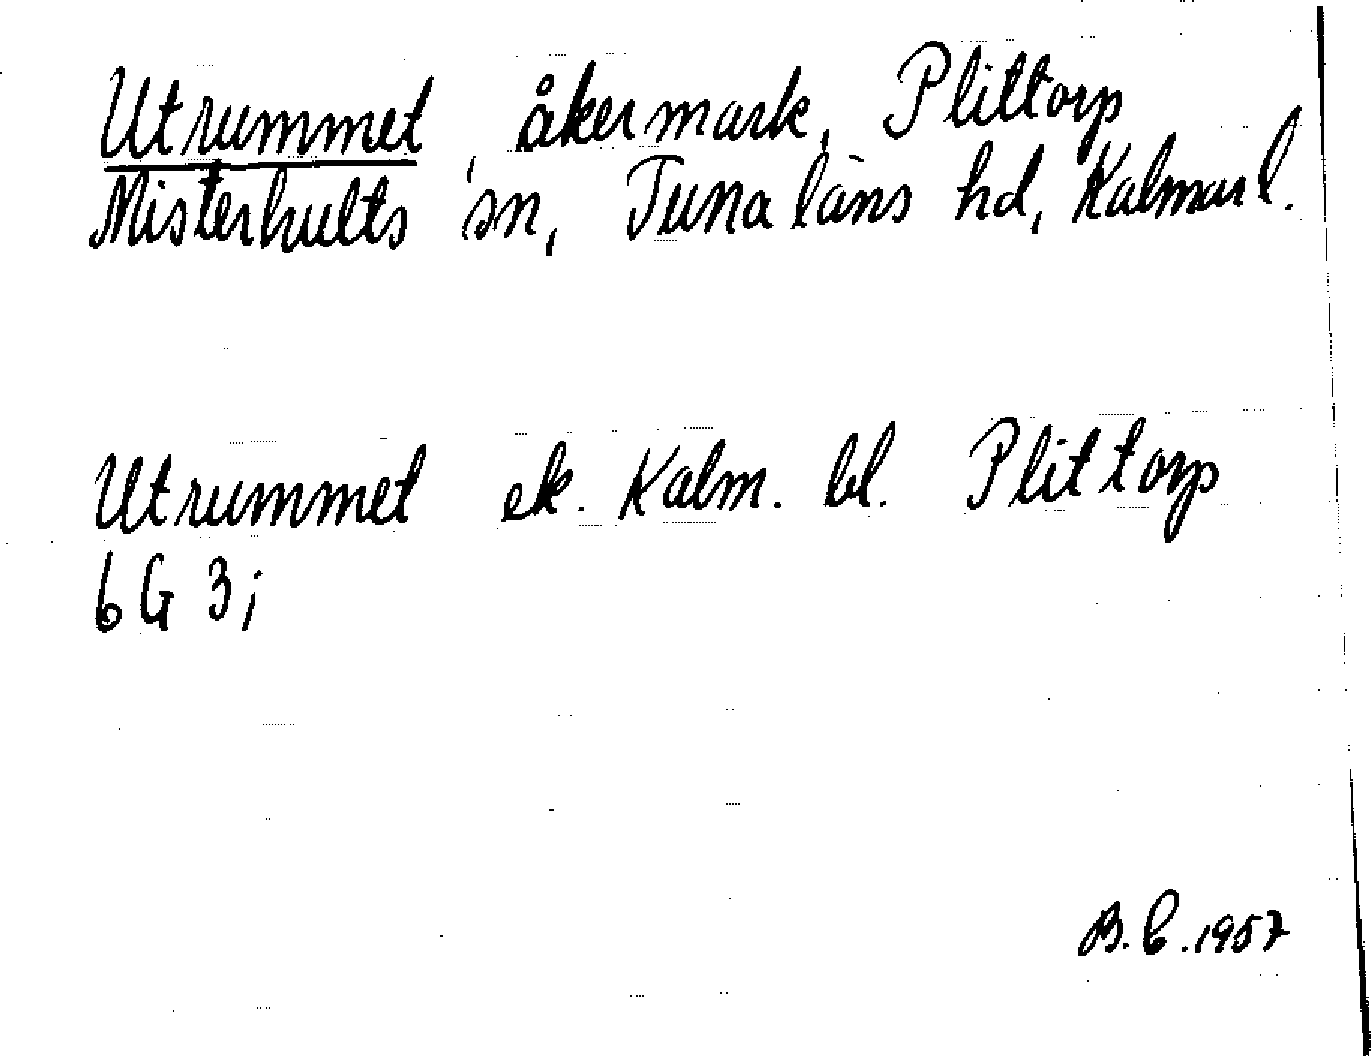 Utrummet, åkermark, Plittorp
Misterhults sn, Tuna läns hd, Kalmar l.
Utrummet ek. Kalm. bl. Plittorp
6G 3i
B.C. 1957